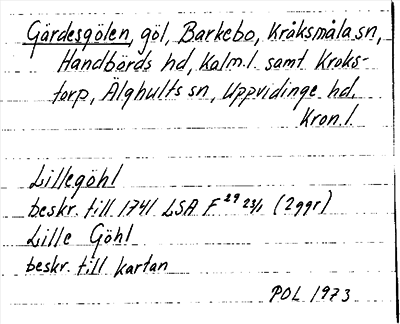 Gärdesgölen, göl, Barkebo, Kråksmåla sn,
Handbörds hd, Kalm.l. samt Kroks-
torp, Älghults sn, Uppvidinge hd,
Kron.l.
Lillegöhl
beskr. till 1741 LSA F 29 23/1 (2 ggr)
Lille Göhl
beskr. till kartan
POL 1973